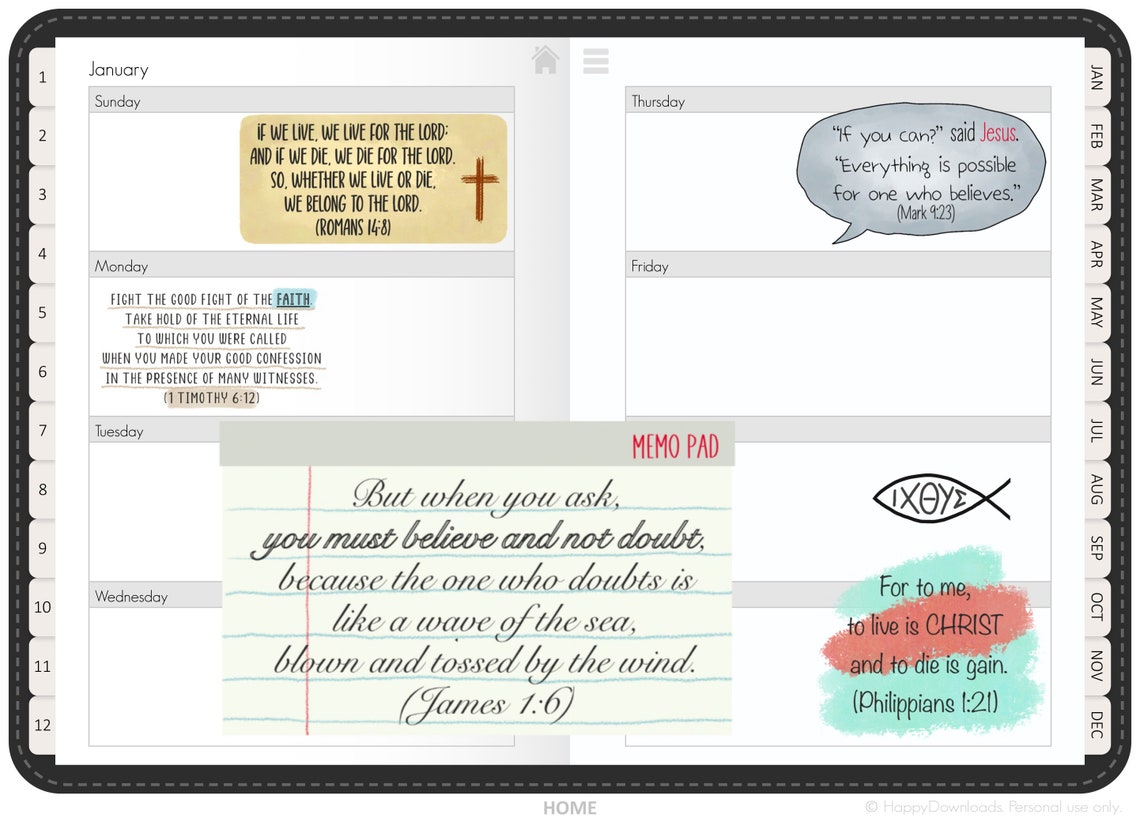 January
Sunday
IF WE LIVE, WE LIVE FOR THE LORD;
AND IF WE DIE, WE DIE FOR THE LORD.
SO, WHETHER WE LIVE OR DIE,
WE BELONG TO THE LORD.
(ROMANS 14:8)
Monday
FIGHT THE GOOD FIGHT OF THE FAITH.
TAKE HOLD OF THE ETERNAL LIFE
TO WHICH YOU WERE CALLED
WHEN YOU MADE YOUR GOOD CONFESSION
IN THE PRESENCE OF MANY WITNESSES.
(1 TIMOTHY 6:12)
Tuesday
Wednesday
MEMO PAD
But when you ask,
you must believe and not doubt,
because the one who doubts is
like a wave of the sea,
blown and tossed by the wind.
(James 1:6)
Thursday
“If you can?” said Jesus.
“Everything is possible
for one who believes.”
(Mark 9:23)
Friday
ΙΧΘΥΣ
For to me,
to live is CHRIST
and to die is gain.
(Philippians 1:21)
1
2
3
4
5
6
7
8
9
10
11
12
JAN
FEB
MAR
APR
MAY
JUN
JUL
AUG
SEP
OCT
NOV
DEC
HOME
© HappyDownloads. Personal use only.